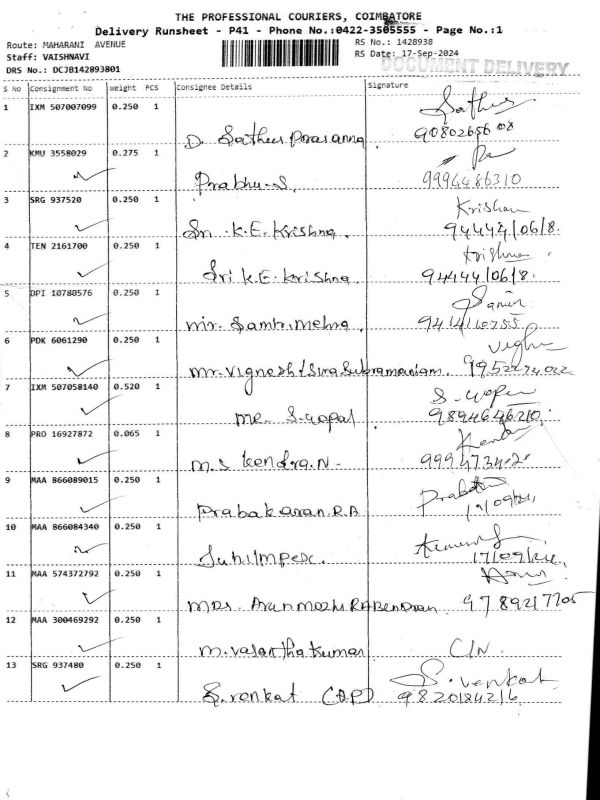 THE PROFESSIONAL COURIERS, COIMBATORE
Delivery Runsheet - P41 - Phone No.:0422-3505555 - Page No.:1
Route: MAHARANI AVENUE RS No.: 1428938
Staff: VAISHNAVI RS Date: 17-Sep-2024
DOCUMENT DELIVERY
DRS No.: DCJB142893801
S No Consignment No Weight PCS Consignee Details Signature
1 IXM 507007099 0.250 1 Sathees
D. Sathees Prasanna 9080265608
2 KMU 3558029 0.275 1
Prabhu.S, 9994486310
3 SRG 937520 0.250 1 Krishna
Sri. K.E. Krishna. 94444/06/8.
4 TEN 2161700 0.250 1 Krishna
Sri K.E. Krishna 94444/06/8.
5 DPI 10780576 0.250 1 Samir
Mr. Samir Mehra.
6 PDK 6061290 0.250 1 Vighn
Mr. Vignesh Siva Subramaniam.
7 IXM 507058140 0.520 1 S. Gopal
Mr. S. Gopal 9894646210.
8 PRO 16927872 0.065 1
M.S Kendra.N.
9 MAA 866089015 0.250 1
Prabakaran.R.A 17/09/24
10 MAA 866084340 0.250 1
17/09/24
11 MAA 574372792 0.250 1
Mrs. Arunmozhi RAjendran 9789217705
12 MAA 300469292 0.250 1
M. Vasantha Kumar C/N.
13 SRG 937480 0.250 1 S. Venkat
S. Venkat 9820184216